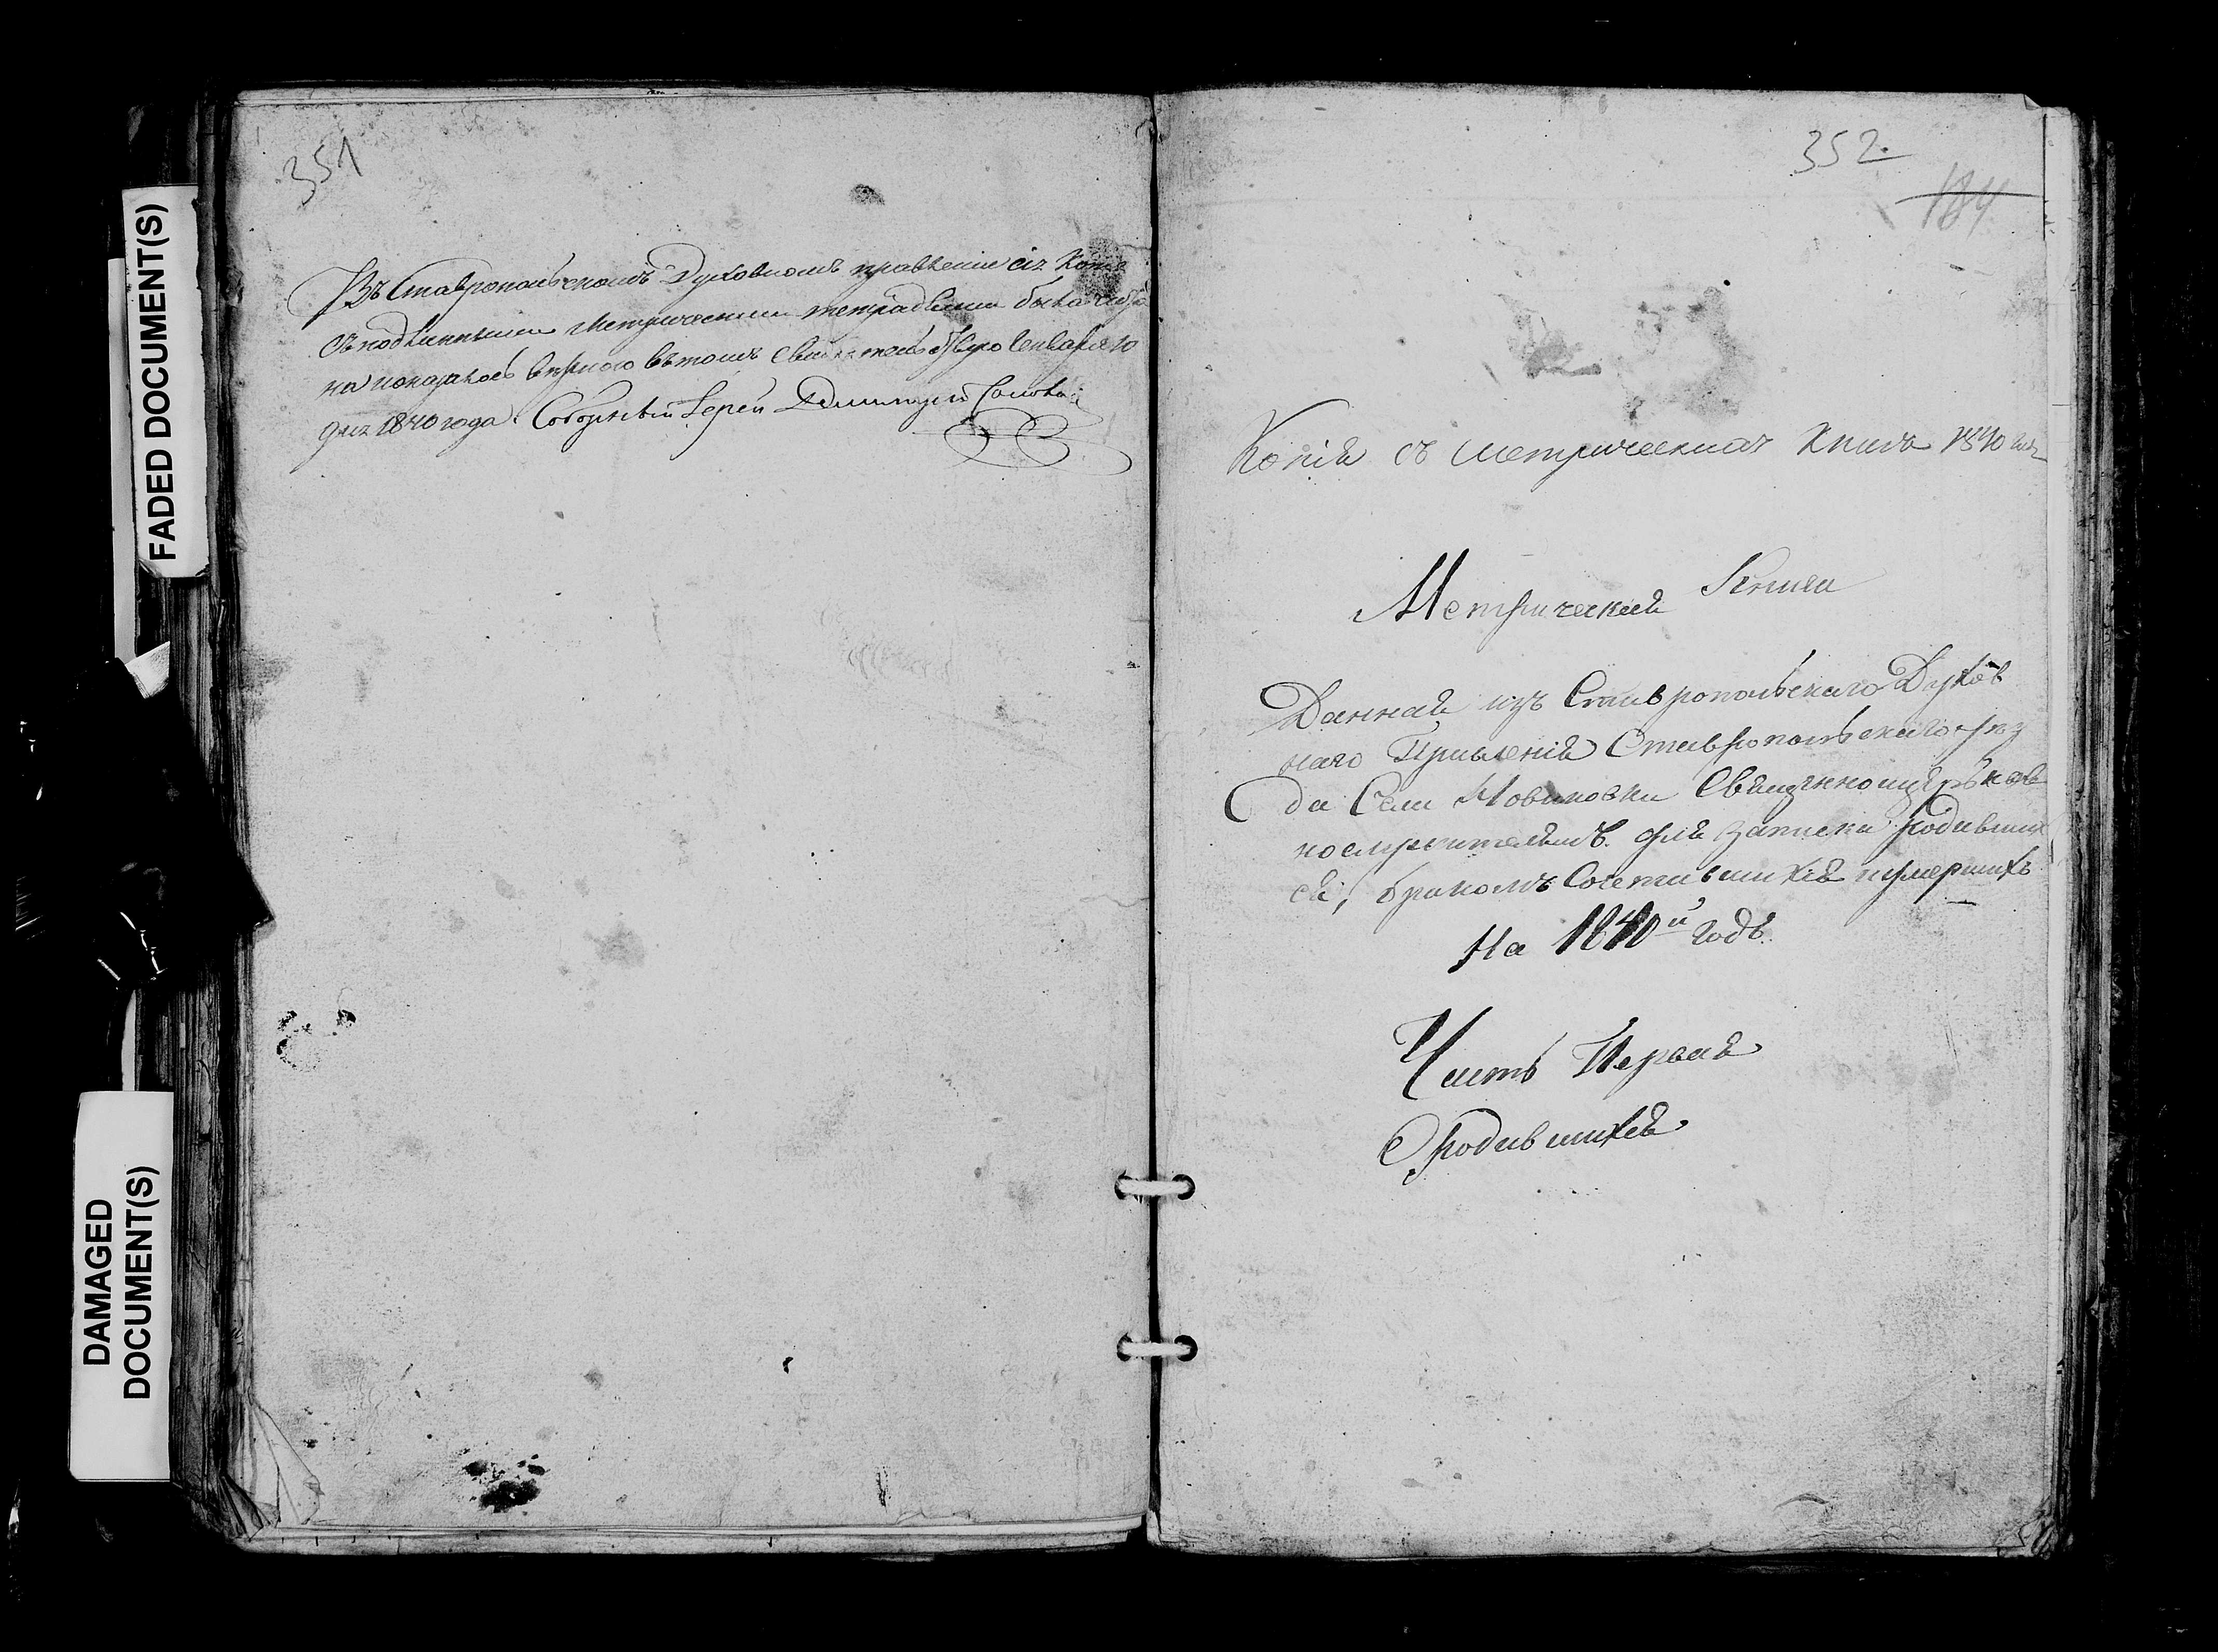 FADED DOCUMENT(S)
DAMAGED
DOCUMENT(S)
351
Въ Ставропольскомъ Духовномъ правленіи сія Копія
съ подлинными метрическими тетрадями была
на показалось вѣрною въ томъ свидѣтельствую Генваря 10
дня 1840 года. Соборный Іерей Димитрій
352
184
Копія съ метрическихъ книгъ 1840
Метрическая Книга
Данная изъ Ставропольскаго Духов
наго Правленія Ставропольскаго уѣз
да Села Новиковки Священноцерьков
нослужителямъ для записки родивших
ся, бракомъ Сочетавшихся и умершихъ
На 1840й годъ.
Часть Первая
О родившихся